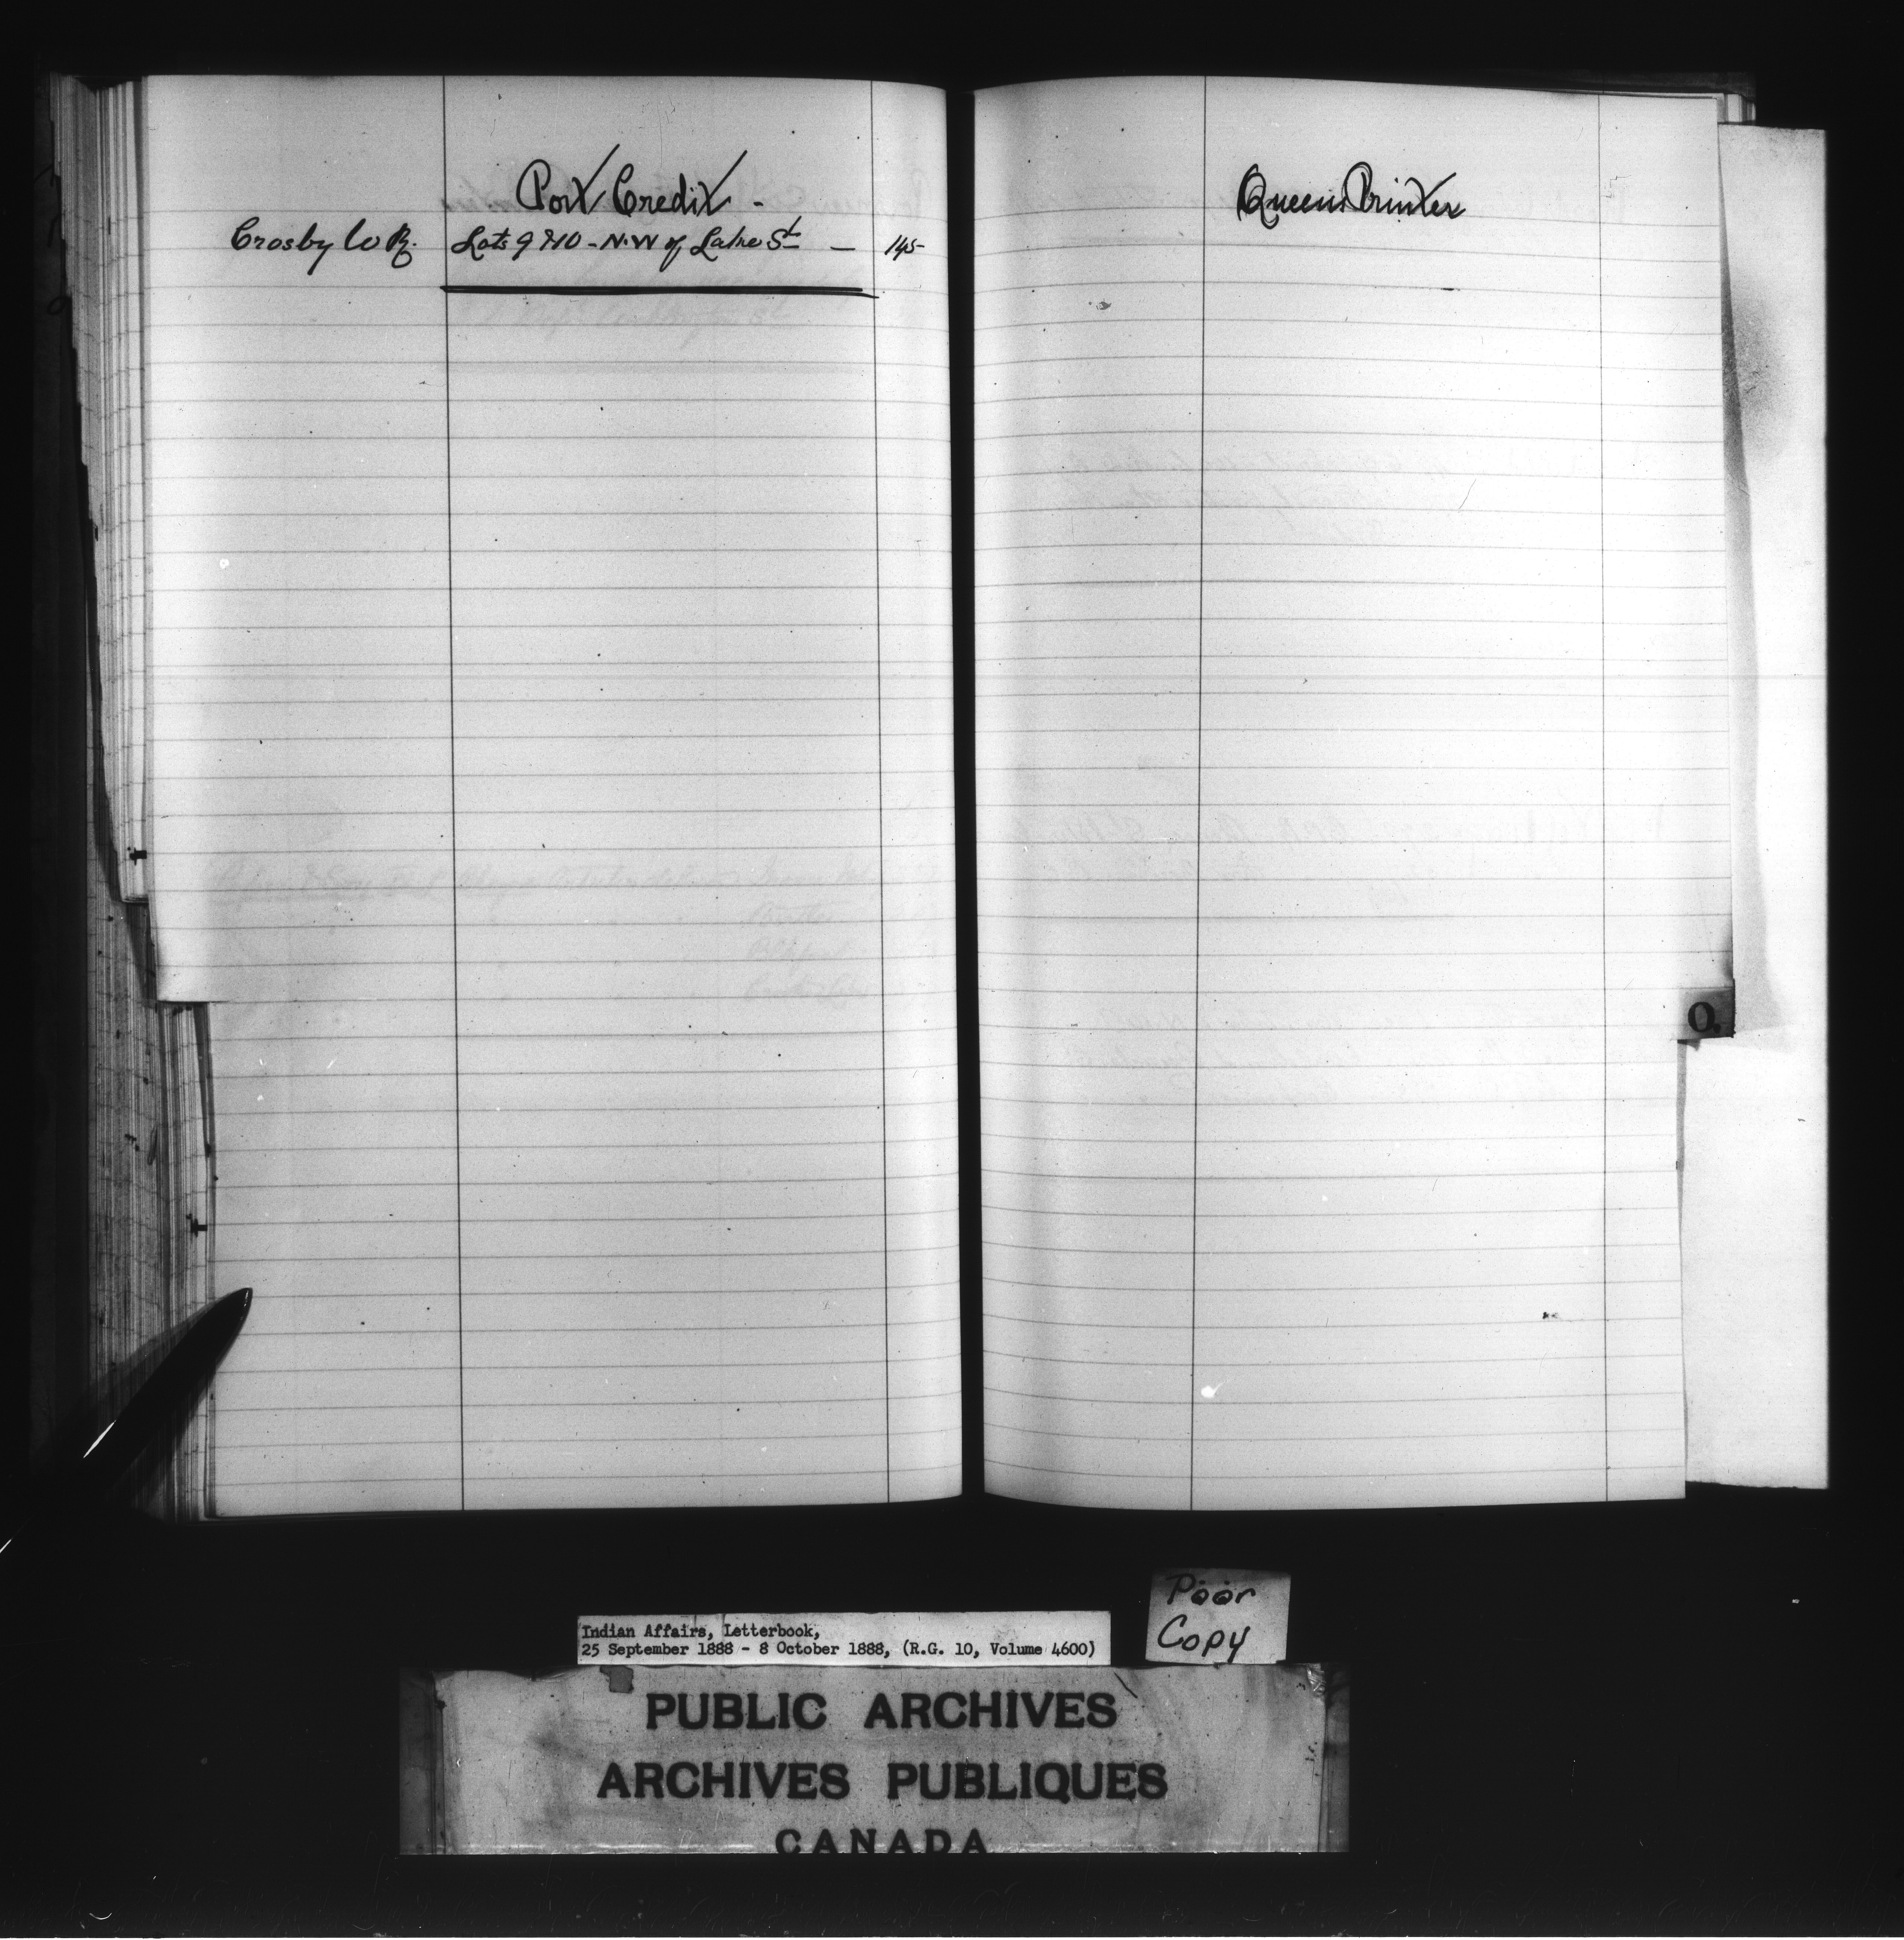 Port Credit -
Crosby W R. Lots 9 & 10 - N.W of Lake St - 145
Queens Printer
O.
Poor
Copy
Indian Affairs, Letterbook,
25 September 1888 - 8 October 1888, (R.G. 10, Volume 4600)
PUBLIC ARCHIVES
ARCHIVES PUBLIQUES
CANADA